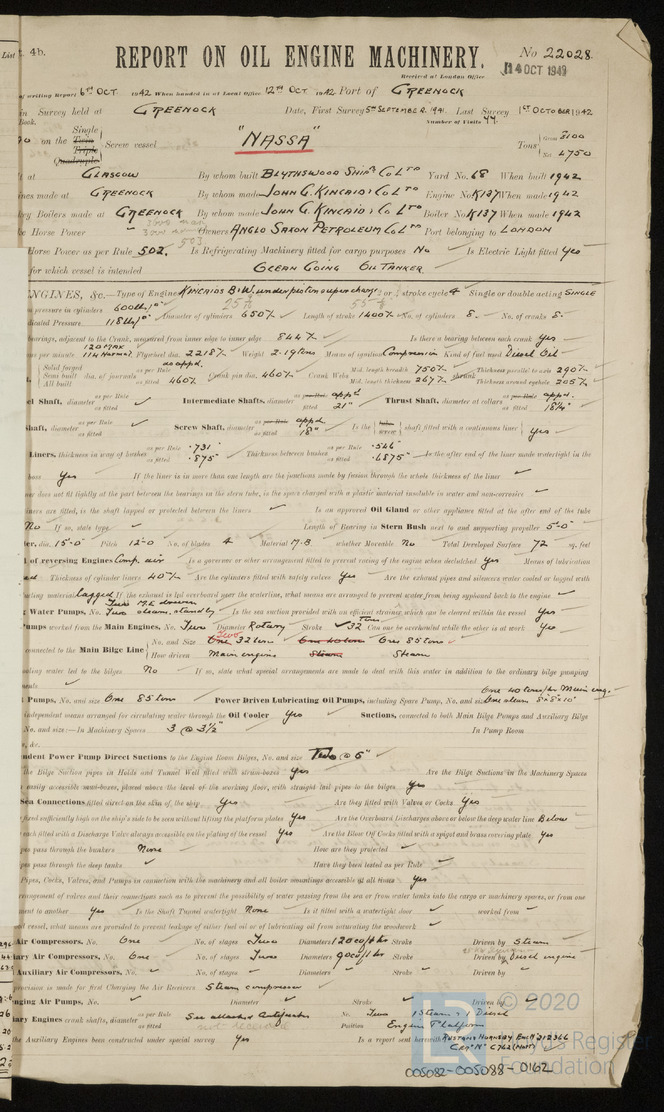 List
t. 4b.
REPORT ON OIL ENGINE MACHINERY.
No 22028
14 OCT 1942
Received at London Office
of writing Report 6th OCT 1942 When handed in at Local Office 12TH OCT 1942 Port of GREENOCK
in Survey held at GREENOCK Date, First Survey 5th SEPTEMBER 1941. Last Survey 1ST OCTOBER 1942
Book. Number of Visits 44
on the Single Twin Triple Quadruple Screw vessel "NASSA" Tons Gross 8100 Net 4750
t at GLASGOW By whom built BLYTHSWOOD SHIPG CO LTD Yard No. 68 When built 1942
ines made at GREENOCK By whom made JOHN G. KINCAID & CO LTD Engine No K137 When made 1942
ey Boilers made at GREENOCK By whom made JOHN G. KINCAID & CO LTD Boiler No K137 When made 1942
ke Horse Power Owners ANGLO SAXON PETROLEUM CO LTD Port belonging to LONDON
Horse Power as per Rule 502. 503 Is Refrigerating Machinery fitted for cargo purposes No Is Electric Light fitted Yes
for which vessel is intended OCEAN GOING OIL TANKER
ENGINES, &c.—Type of Engine KINCAIDS B&W. underpiston supercharge 2 or 4 stroke cycle 4 Single or double acting SINGLE
m pressure in cylinders 600 lbs/□" Diameter of cylinders 650 % Length of stroke 1400 % No. of cylinders 8. No. of cranks 8.
dicated Pressure 118 lbs/□"
bearings, adjacent to the Crank, measured from inner edge to inner edge 844 % Is there a bearing between each crank Yes
ns per minute 120 MAX 114 Normal Flywheel dia. 2218 % Weight 2.19 tons Means of ignition Compression Kind of fuel used Diesel Oil
Solid forged Semi built All built dia. of journals as per Rule as appd. as fitted 460 % Crank pin dia. 460 % Crank Webs Mid. length breadth 750 % Mid. length thickness 267 % shrunk Thickness parallel to axis 290 % Thickness around eyehole 205 %
el Shaft, diameter as per Rule as fitted Intermediate Shafts, diameter as per Rule appd as fitted 21" Thrust Shaft, diameter at collars as per Rule appd. as fitted 18 1/4"
haft, diameter as per Rule as fitted Screw Shaft, diameter as per Rule appd as fitted 18" Is the tube screw shaft fitted with a continuous liner Yes
Liners, thickness in way of bushes as per Rule .731" as fitted .875" Thickness between bushes as per Rule .546" as fitted .6875" Is the after end of the liner made watertight in the
boss Yes If the liner is in more than one length are the junctions made by fusion through the whole thickness of the liner
ner does not fit tightly at the part between the bearings in the stern tube, is the space charged with a plastic material insoluble in water and non-corrosive
iners are fitted, is the shaft lapped or protected between the liners Is an approved Oil Gland or other appliance fitted at the after end of the tube
No If so, state type Length of Bearing in Stern Bush next to and supporting propeller 5'-0"
er, dia. 15'-0" Pitch 12'-0 No. of blades 4 Material M.B. whether Moveable No Total Developed Surface 72 sq. feet
d of reversing Engines Comp. air Is a governor or other arrangement fitted to prevent racing of the engine when declutched Yes Means of lubrication
Thickness of cylinder liners 40 % Are the cylinders fitted with safety valves Yes Are the exhaust pipes and silencers water cooled or lagged with
ating material lagged If the exhaust is led overboard near the waterline, what means are arranged to prevent water being syphoned back to the engine
g Water Pumps, No. Two M.E. driven Two steam, standby Is the sea suction provided with an efficient strainer which can be cleared within the vessel Yes
umps worked from the Main Engines, No. Two Diameter Rotary Stroke 32 Tons Can one be overhauled while the other is at work Yes
connected to the Main Bilge Line No. and Size Two One 32 tons One 40 tons One 85 tons
How driven Main engine Steam Steam
oling water led to the bilges No If so, state what special arrangements are made to deal with this water in addition to the ordinary bilge pumping
ents
t Pumps, No. and size One 85 tons Power Driven Lubricating Oil Pumps, including Spare Pump, No. and size One 40 tons/hr Main eng. One steam 8"x8"x10"
independent means arranged for circulating water through the Oil Cooler Yes Suctions, connected to both Main Bilge Pumps and Auxiliary Bilge
No. and size:—In Machinery Spaces 3 @ 3½" In Pump Room
s, &c.
ndent Power Pump Direct Suctions to the Engine Room Bilges, No. and size Two @ 6"
the Bilge Suction pipes in Holds and Tunnel Well fitted with strum-boxes Yes Are the Bilge Suctions in the Machinery Spaces
easily accessible mud-boxes, placed above the level of the working floor, with straight tail pipes to the bilges Yes
Sea Connections fitted direct on the skin of the ship Yes Are they fitted with Valves or Cocks Yes
fixed sufficiently high on the ship's side to be seen without lifting the platform plates Yes Are the Overboard Discharges above or below the deep water line Below
each fitted with a Discharge Valve always accessible on the plating of the vessel Yes Are the Blow Off Cocks fitted with a spigot and brass covering plate Yes
pes pass through the bunkers None How are they protected
pes pass through the deep tanks Have they been tested as per Rule
Pipes, Cocks, Valves, and Pumps in connection with the machinery and all boiler mountings accessible at all times Yes
rrangement of valves and their connections such as to prevent the possibility of water passing from the sea or from water tanks into the cargo or machinery spaces, or from one
ment to another Yes Is the Shaft Tunnel watertight None Is it fitted with a watertight door worked from
d vessel, what means are provided to prevent leakage of either fuel oil or of lubricating oil from saturating the woodwork
Air Compressors, No. One No. of stages Two Diameters 120 cuft/hr Stroke Driven by Steam
iary Air Compressors, No. One No. of stages Two Diameters 90 cuft/hr Stroke Driven by Diesel engine
Auxiliary Air Compressors, No. No. of stages Diameters Stroke Driven by
provision is made for first Charging the Air Receivers Steam compressor
nging Air Pumps, No. Diameter Stroke Driven by
iary Engines crank shafts, diameter as per Rule as fitted See attached Certificates No. Two 1 Steam & 1 Diesel
not received Position Engine Platform
the Auxiliary Engines been constructed under special survey Yes Is a report sent herewith RUSTONS HORNSBY Eng No 212366
© 2020
Lloyd's Register
Foundation
005082-005088-0162